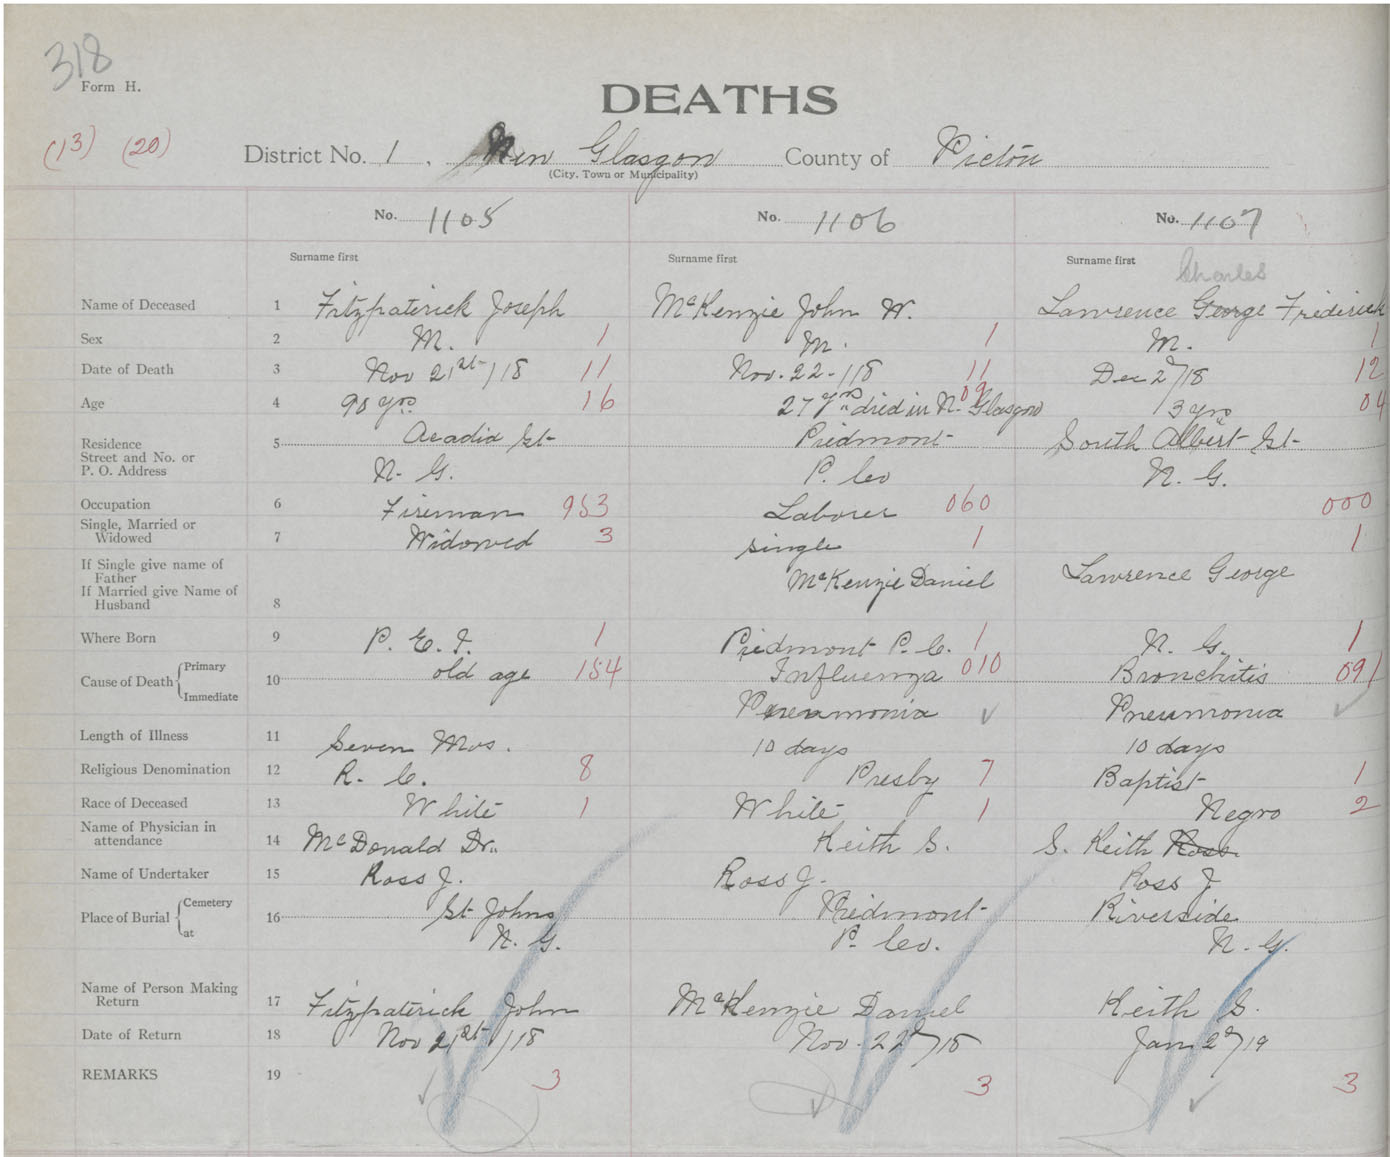 318
Form H.
DEATHS
(13) (20)
District No. 1, New Glasgow County of Pictou
(City, Town or Municipality)
No. 1105 No. 1106 No. 1107
Surname first Surname first Surname first
Charles
Name of Deceased 1 Fitzpaterick Joseph McKenzie John W. Lawrence George Friderick
Sex 2 M. 1 M. 1 M. 1
Date of Death 3 Nov 21st/18 11 Nov. 22-/18 11 Dec 2d/18 12
Age 4 90 yrs 16 27 yrs died in N. Glasgow 09 13 yrs 04
Residence 5 Acadia St Piedmont South Albert St
Street and No. or
P. O. Address N. G. P. Co N. G.
Occupation 6 Fireman 953 Laborer 060 000
Single, Married or
Widowed 7 Widowed 3 single 1 1
If Single give name of
Father McKenzie Daniel Lawrence George
If Married give Name of
Husband 8
Where Born 9 P. E. I. 1 Piedmont P. C. 1 N. G. 1
Cause of Death { Primary 10 old age 154 Influenza 010 Bronchitis 091
Immediate Pneumonia Pneumonia
Length of Illness 11 Seven Mos. 10 days 10 days
Religious Denomination 12 R. C. 8 Presby 7 Baptist 1
Race of Deceased 13 White 1 White 1 Negro 2
Name of Physician in
attendance 14 McDonald Dr. Keith S. S. Keith Ross.
Name of Undertaker 15 Ross J. Ross J. Ross J
Place of Burial { Cemetery 16 St Johns Piedmont Riverside
at N. G. P. Co. N. G.
Name of Person Making
Return 17 Fitzpaterick John McKenzie Daniel Keith S.
Date of Return 18 Nov 21st/18 Nov. 22d/18 Jan 2d/19
REMARKS 19 3 3 3